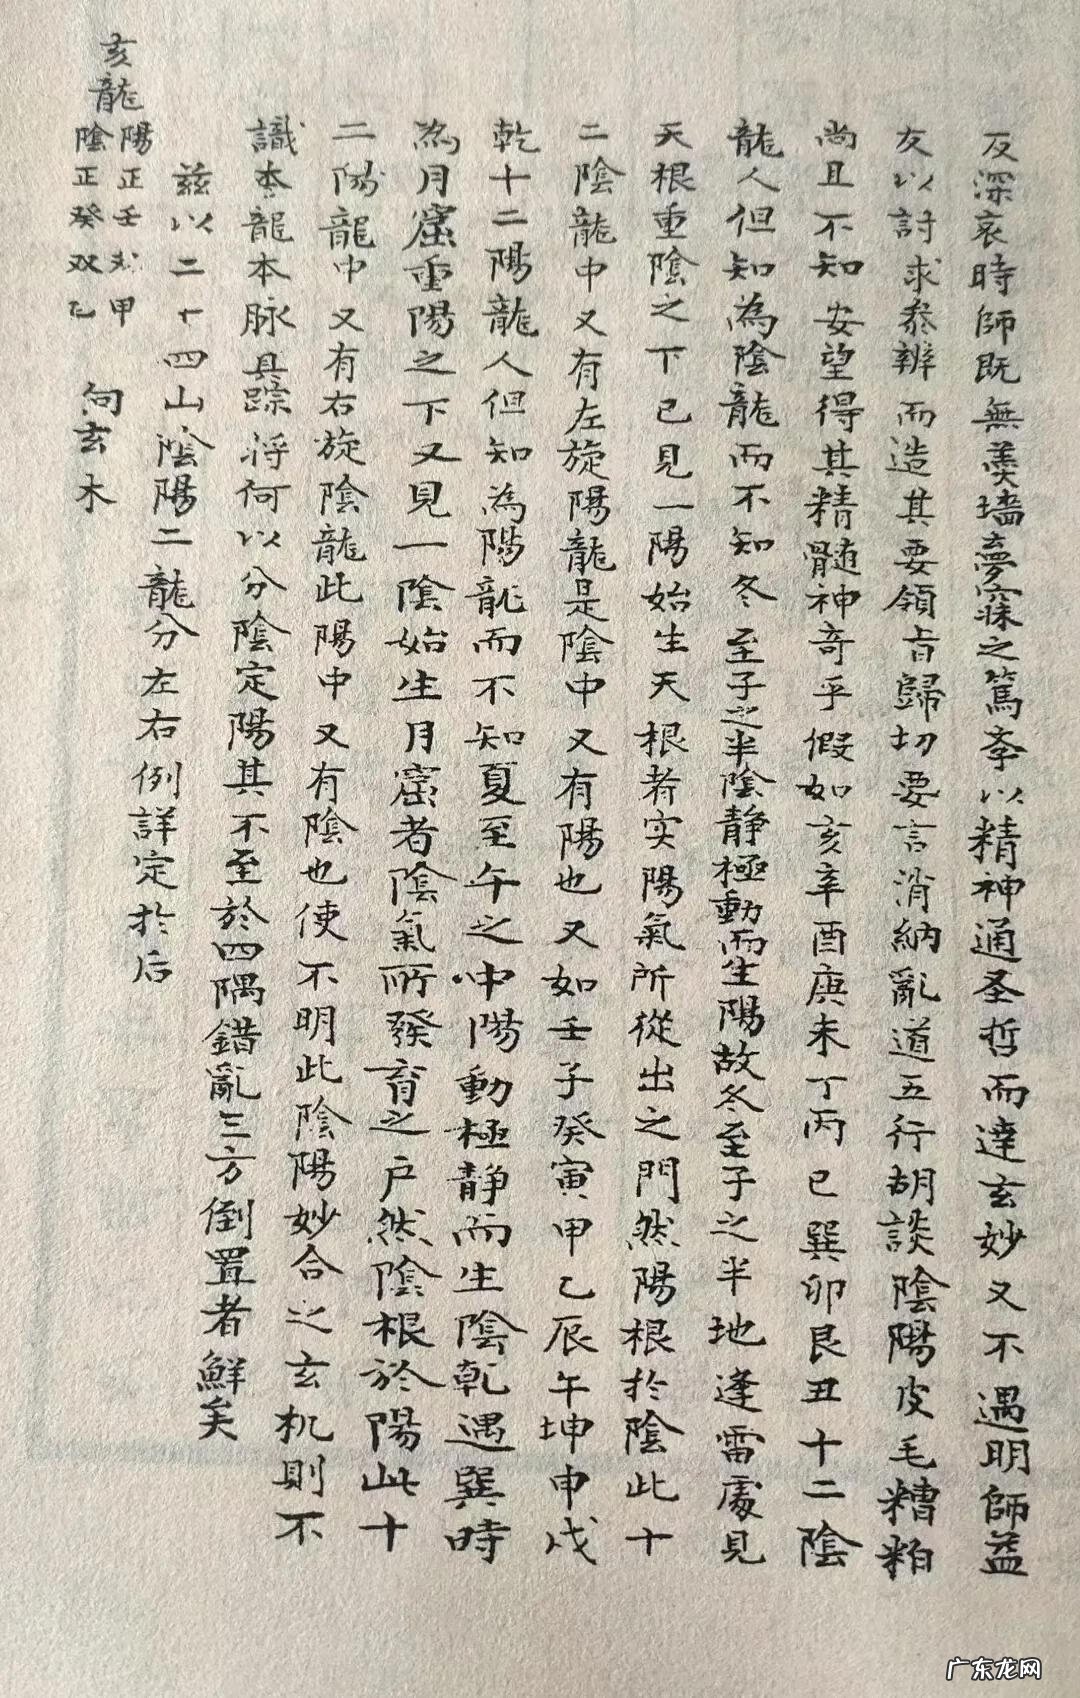 反深哀時師既無羹墻夢寐之篤孝以精神通圣哲而達玄妙又不遇明師益
友以討求叅辨而造其要領旨歸切要言消納亂道五行胡談陰陽皮毛糟粕
尚且不知安望得其精髓神奇乎假如亥辛酉庚未丁丙巳巽卯艮丑十二陰
龍人但知為陰龍而不知冬至子之半陰静極動而生陽故冬至子之半地逢雷處見
天根重陰之下已見一陽始生天根者实陽氣所從出之門然陽根於陰此十
二陰龍中又有左旋陽龍是陰中又有陽也又如壬子癸寅甲乙辰午坤申戌
乾十二陽龍人但知為陽龍而不知夏至午之中陽動極静而生陰乾遇巽時
為月窟重陽之下又見一陰始生月窟者陰氣所發育之户然陰根於陽此十
二陽龍中又有右旋陰龍此陽中又有陰也使不明此陰陽妙合之玄机則不
識本龍本脉具踪将何以分陰定陽其不至於四隅錯亂三方倒置者鮮矣
茲以二十四山陰陽二龍分左右例詳定於后
亥龍
陽正壬甲
陰正癸双
向玄木
广东龙网